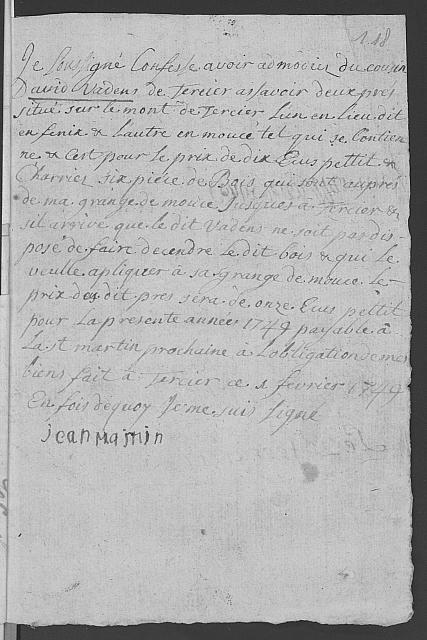 118
Je soussigné Confesse avoir admodiés du cousin
David Vadens de Tercier assavoir deux prés
situé sur le mont de Tercier Lun en Lieu dit
en fenix & Lautre en mouce tel qui se Contien
ne & C'est pour le prix de dix Ecus pettit &
Charrier six piéce de Bois qui sont auprés
de ma grange de mouce Jusques à Tercier &
sil arrive que le dit Vadens ne soit pas dis-
posé de faire decendre le dit bois & qui le
veulle apliquer à sa grange de mouce Le
prix des dit pres sera de onze Ecus pettit
pour La presente années 1749 payable à
La st martin prochaine à Lobligation de mes
biens fait à Tercier ce 1 fevrier 1749
En fois dequoy Je me suis signé
jean mamin